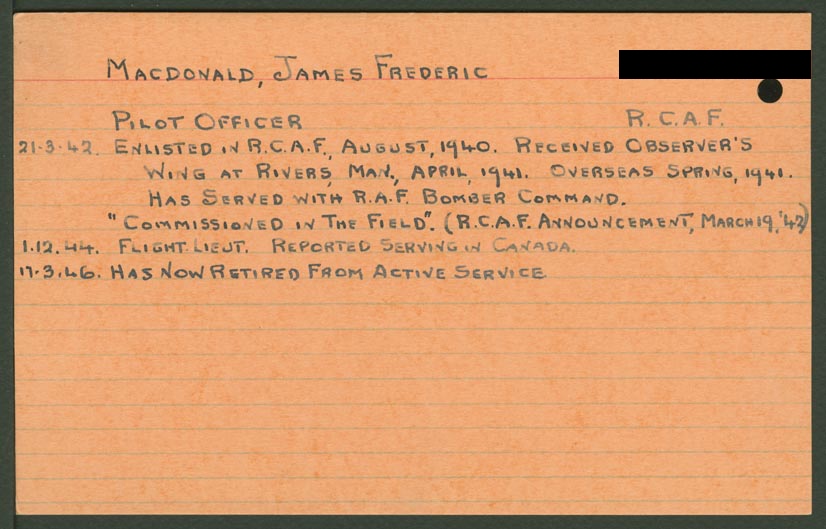 MACDONALD, JAMES FREDERIC
PILOT OFFICER R.C.A.F.
21.3.42. ENLISTED IN R.C.A.F., AUGUST, 1940. RECEIVED OBSERVER'S
WING AT RIVERS, MAN., APRIL, 1941. OVERSEAS SPRING, 1941.
HAS SERVED WITH R.A.F. BOMBER COMMAND.
"COMMISSIONED IN THE FIELD". (R.C.A.F. ANNOUNCEMENT, MARCH 19, '42)
1.12.44. FLIGHT LIEUT. REPORTED SERVING IN CANADA.
17.3.46. HAS NOW RETIRED FROM ACTIVE SERVICE